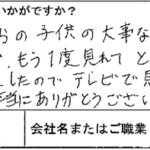 いかがですか?
の子供の大事な
もう1度見れて と
したので テレビで見
当に ありがとうござい
会社名またはご職業